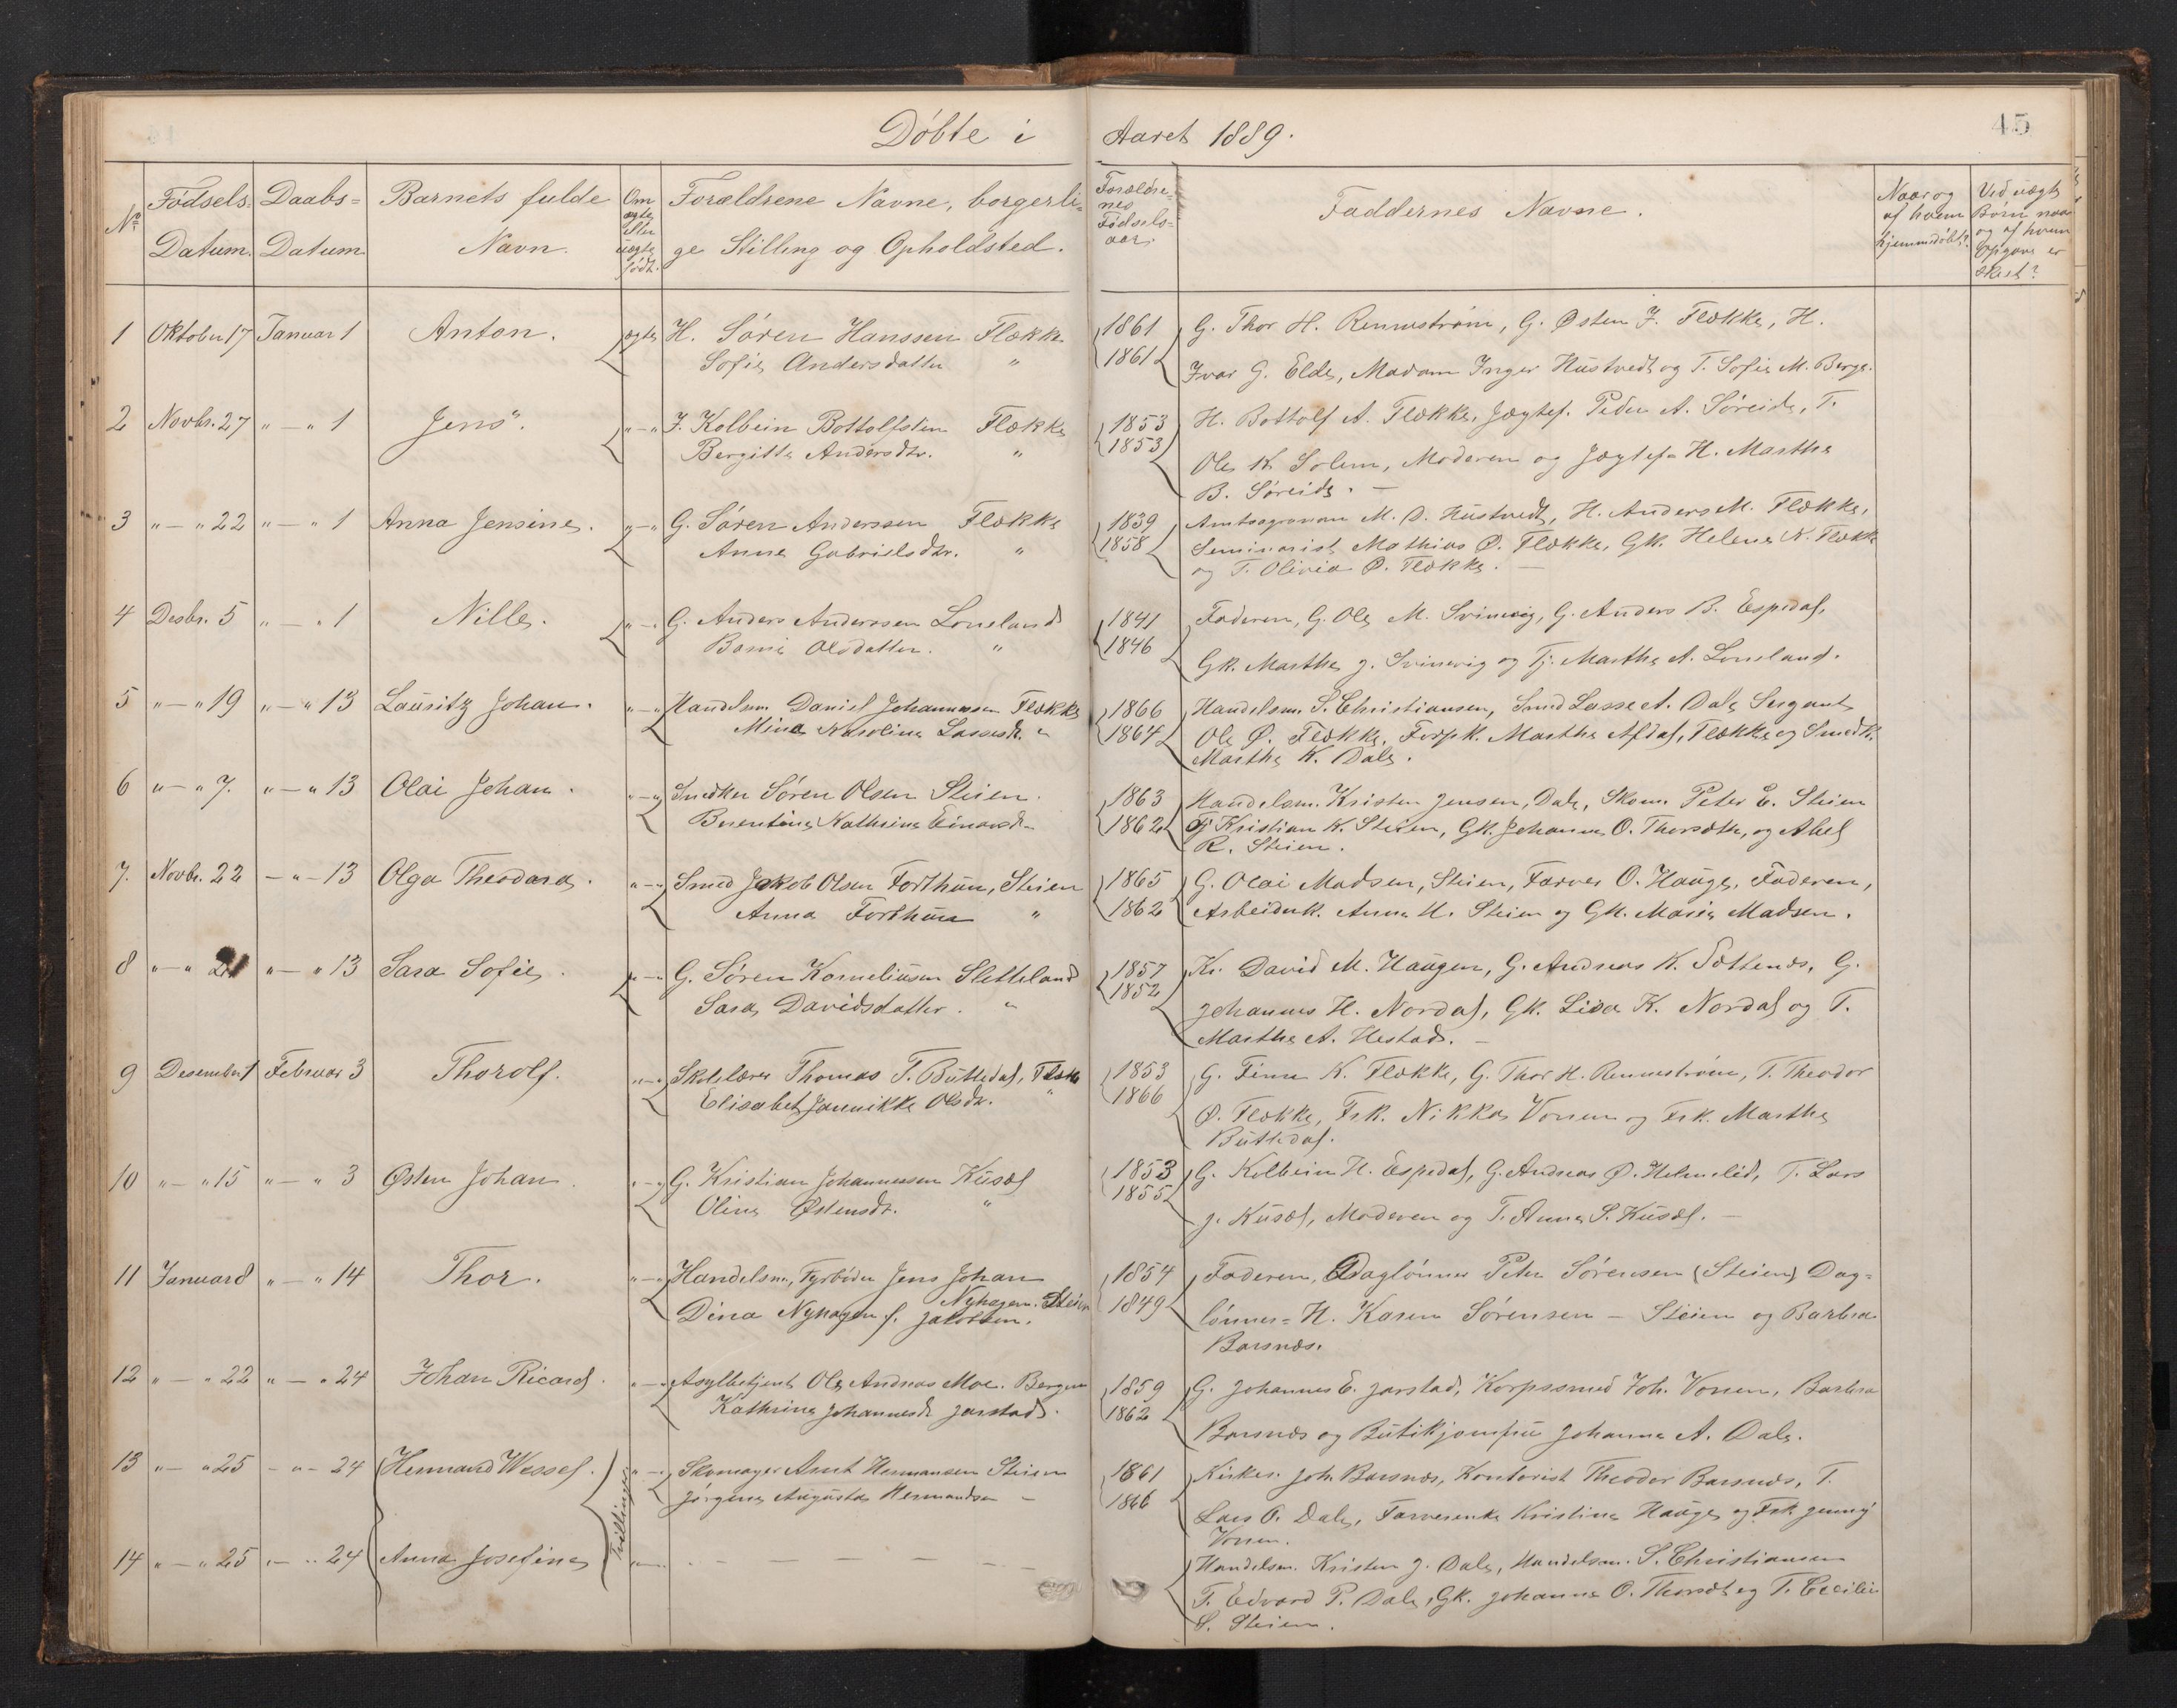 Döbte i Aaret 1889.
45
No
Födsels-Datum.
Daabs-Datum
Barnets fulde Navn.
Om ægte eller uægte födt.
Forældrene Navne, borgerlige Stilling og Opholdsted.
Forældrenes Födselsaar.
Faddernes Navne.
Naar og af hvem hjemmedöbt?
Ved uægte Börn naar og af hvem Opgave er skeet?
1 Oktober 17 Januar 1 Anton. ægte H. Sören Hanssen Flekke 1861 G. Thor H. Rennestrøm, G. Østen J. Flekke, H.
Sofie Andersdatter " 1861 Ivar G. Elde, Madam Inger Hustvedt og T. Sofie M. Berge.
2 Novbr. 27 " — " 1 Jens. " — " J. Kolbein Bottolfsen Flekke 1853 H. Bottolf A. Flekke, Jægtef. Peder A. Söreide, T.
Bergitte Andersdtr. " 1853 Ole K. Solem, Moderen og Jægtef. H. Marthe
B. Söreide. —
3 " — " 22 " — " 1 Anna Jensine. " — " G. Sören Anderssen Flekke 1839 Amtsagronom M. D. Hustvedt, H. Anders M. Flekke,
Anne Gabrielsdtr. " 1858 Seminarist Mathias Ø. Flekke, Gk. Helene K. Flekke
og T. Olivia Ø. Flekke. —
4 Desbr. 5 " — " 1 Nille. " — " G. Anders Anderssen Loneland 1841 Faderen, G. Ole M. Svinevig, G. Anders B. Espedal,
Olsdatter. " 1846 Gk. Marthe J. Svinevig og Tj. Marthe A. Loneland.
5 " — " 19 " — " 13 Lauritz Johan. " — " Handelsm. Daniel Johannessen Flekke 1866 Handelsm. S. Christiansen, Smed Lasse A. Dale Sergant
Mina Karoline Lassedr. " 1864 Ole Ø. Flekke, Forpk. Marthe Afdal, Flekke og Smedk.
Marthe K. Dale.
6 " — " 7. " — " 13 Olai Johan. " — " Snedker Sören Olsen Steien. 1863 Handelsm. Kristen Jensen, Dale, Skom. Peter E. Steien
Berentine Kathrine Einarsdr. 1862 Tj Kristian K. Steien, Gk. Johanne O. Thorsæth, og Abel
R. Steien.
7. Novbr. 22 — " — 13 Olga Theodora. " — " Smed Jakob Olsen Forthun, Steien 1865 G. Olai Madsen, Steien, Farver O. Hauge, Faderen,
Anna Forthun " 1862 Arbeiderk. Anna H. Steien og Gk. Marie Madsen.
8 " — " 21 " — " 13 Sara Sofie. " — " G. Sören Korneliusen Sletteland 1857 Kr. David M. Haugen, G. Andreas K. Sættenæs, G.
Sara Davidsdatter. " 1852 Johannes H. Nordal, Gk. Lisa K. Nordal og T.
Marthe A. Hestad. —
9 Desember 1 Februar 3 Thorolf. " — " Skolelærer Thomas T. Büttedal, Flekke 1853 G. Finn K. Flekke, G. Thor H. Rennestrøm, T. Theodor
Elisabet Jannikke Olsdr. " 1866 Ø. Flekke, Frk. Nikka Vonen og Frk. Marthe
Büttedal.
10 " — " 15 " — " 3 Østen Johan. " — " G. Kristian Johannessen Kusæl 1853 G. Kolbein H. Espedal, G. Andreas Ø. Helmelid, T. Lars
Oline Østensdr. " 1855 J. Kusæl, Moderen og T. Anne S. Kusæl. —
11 Januar 8 " — " 14 Thor. " — " Handelsm., Fyrböder Jens Johan 1854 Faderen, Daglönner Peter Sörensen (Steien) Dag-
Nyhagen. Steien
Dina Nyhagen f. Jakobsen. 1849 lönner= H. Karen Sörensen — Steien og Barbra
Barsnæs.
12 " — " 22 " — " 24 Johan Ricard. " — " Asylbetjent Ole Andreas Moe. Bergen 1859 G. Johannes E. Jarstad, Korpssmed Joh. Vonen, Barbra
Kathrine Johannesdr. Jarstad. 1862 Barsnæs og Butikjomfru Johanne A. Dale.
13 " — " 25 - " - 24 Hermand Wessel. Tvillinger " — " Skomager Anut Hermansen Steien 1861 Kirkes. Joh. Barsnæs, Kontorist Theodor Barsnæs, T.
Jörgine Augusta Hermandsen — 1866 Lars O. Dale, Farverenke Kristine Hauge og Frk. Jenny
Vonen.
14 " — " 25 " — " 24 Anna Josefine " — " — — — — — Handelsm. Kristen J. Dale, Handelsm. S. Christiansen
T. Edvard P. Dale, Gk. Johanne O. Thorsæt og T. Cecilie
S. Steien.